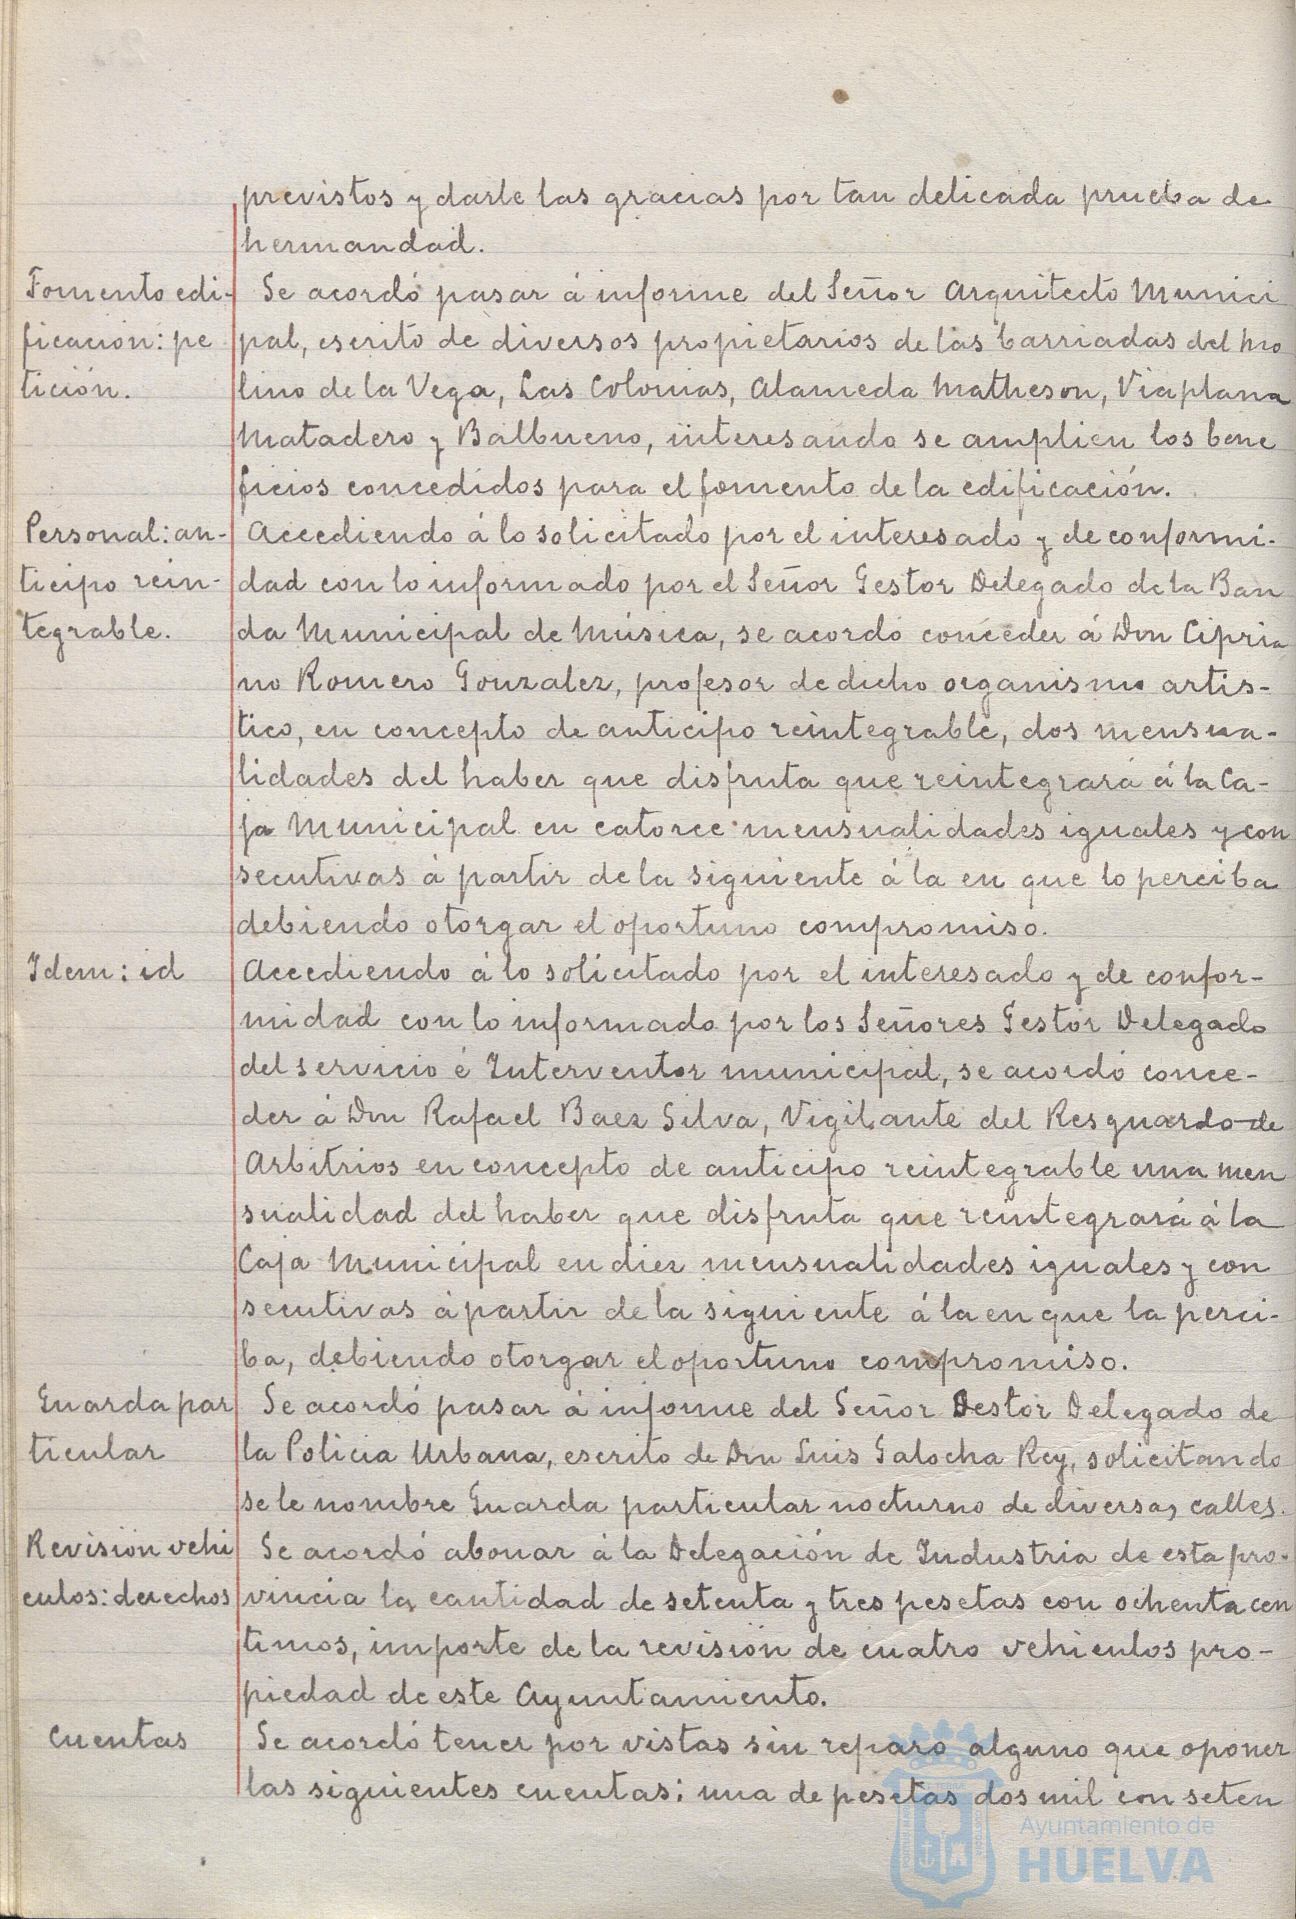 previstos y darle las gracias por tan delicada prueba de
hermandad.
Fomento edi-
ficación: pe
tición.
Se acordó pasar á informe del Señor Arquitecto Munici
pal, escrito de diversos propietarios de las barriadas del Mo
lino de la Vega, Las Colonias, Alameda Matheson, Viaplana
Matadero y Balbueno, interesando se amplien los bene
ficios concedidos para el fomento de la edificación.
Personal: an-
ticipo rein-
tegrable.
Accediendo á lo solicitado por el interesado y de conformi-
dad con lo informado por el Señor Gestor Delegado de la Ban
da Municipal de Música, se acordó conceder á Don Cipria
no Romero Gonzalez, profesor de dicho organismo artis-
tico, en concepto de anticipo reintegrable, dos mensua-
lidades del haber que disfruta que reintegrará á la Ca-
ja Municipal en catorce mensualidades iguales y con
secutivas á partir de la siguiente á la en que lo perciba
debiendo otorgar el oportuno compromiso.
Idem: id
Accediendo á lo solicitado por el interesado y de confor-
midad con lo informado por los Señores Gestor Delegado
del servicio é Interventor municipal, se acordó conce-
der á Don Rafael Baez Silva, Vigilante del Resguardo de
Arbitrios en concepto de anticipo reintegrable una men
sualidad del haber que disfruta que reintegrará á la
Caja Municipal en diez mensualidades iguales y con
secutivas á partir de la siguiente á la en que la perci-
ba, debiendo otorgar el oportuno compromiso.
Guarda par
ticular
Se acordó pasar á informe del Señor Destor Delegado de
la Policia Urbana, escrito de Don Luis Galocha Rey, solicitando
se le nombre Guarda particular nocturno de diversas calles.
Revisión vehi
culos: derechos
Se acordó abonar á la Delegación de Industria de esta pro-
vincia la cantidad de setenta y tres pesetas con ochenta cen
timos, importe de la revisión de cuatro vehiculos pro-
piedad de este Ayuntamiento.
Cuentas
Se acordó tener por vistas sin reparo alguno que oponer
las siguientes cuentas: una de pesetas dos mil con seten
Ayuntamiento de
HUELVA